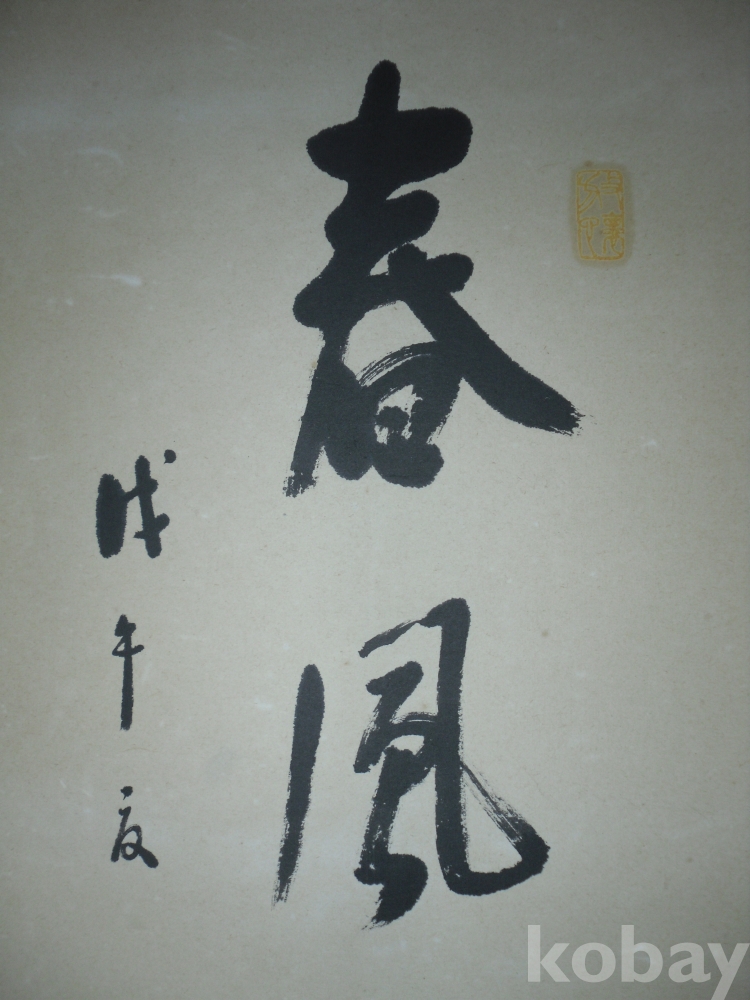 春風
戊午夏
kobay